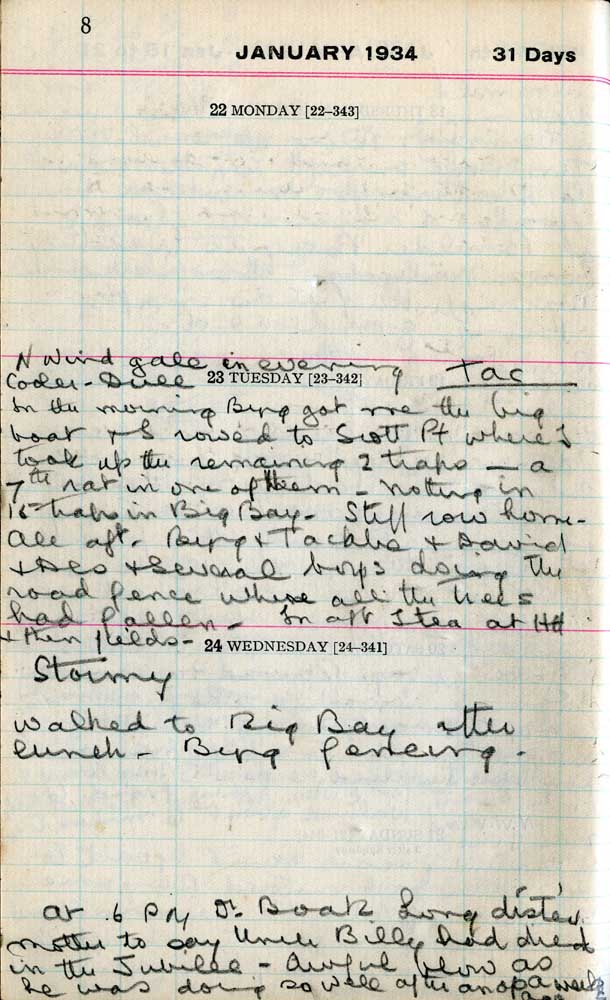 8
JANUARY 1934 31 Days
22 MONDAY [22–343]
N Wind gale in evening Tac
Cooler - Dull 23 TUESDAY [23–342]
In the morning Byng got me the big
boat & I rowed to Scott Pt where I
took up the remaining 2 traps — a
7th rat in one of them - nothing in
15 traps in Big Bay - Stiff row home -
All aft. Byng & & David
& several boys doing the
road fence where all the trees
had fallen - In aft I tea at HH
& then fields -
24 WEDNESDAY [24–341]
Stormy
Walked to Big Bay after
lunch - Byng fencing -
at 6 PM Dr. Boak
mother to say Uncle Billy had died
in the Jubilee - Awful blow as
he was doing so well after an op a week